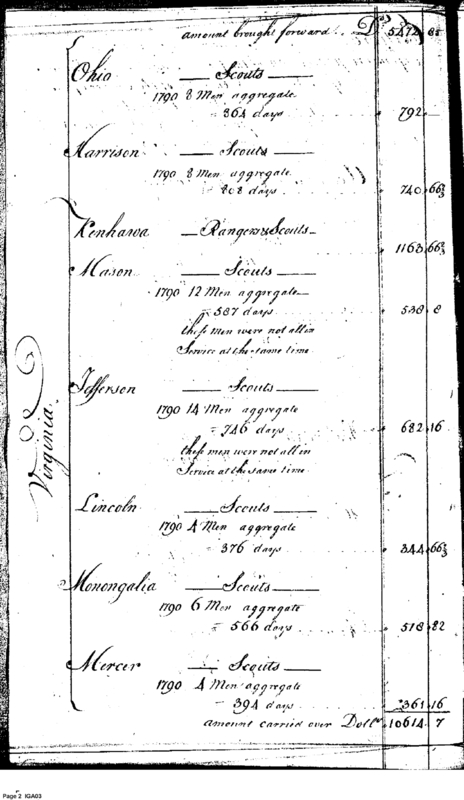 amount brought forward Dolrs 5472 85
Ohio — Scouts —
1790 8 Men aggregate
= 864 days 792 —
Harrison — Scouts —
1790 8 Men aggregate
= 808 days 740 66⅔
Kenhawa — Rangers & Scouts — 1163 66⅔
Mason — Scouts —
1790 12 Men aggregate
= 587 days 538 8
these men were not all in
Service at the same time
Jefferson — Scouts —
1790 14 Men aggregate
= 746 days 682 16
these men were not all in
Service at the same time
Virginia
Lincoln — Scouts —
1790 4 Men aggregate
= 376 days 344 66⅔
Monongalia — Scouts —
1790 6 Men aggregate
= 566 days 518 82
Mercer — Scouts —
1790 4 Men aggregate
= 394 days 361 16
amount carried over Dollrs 10614 7
Page 2 IGA03